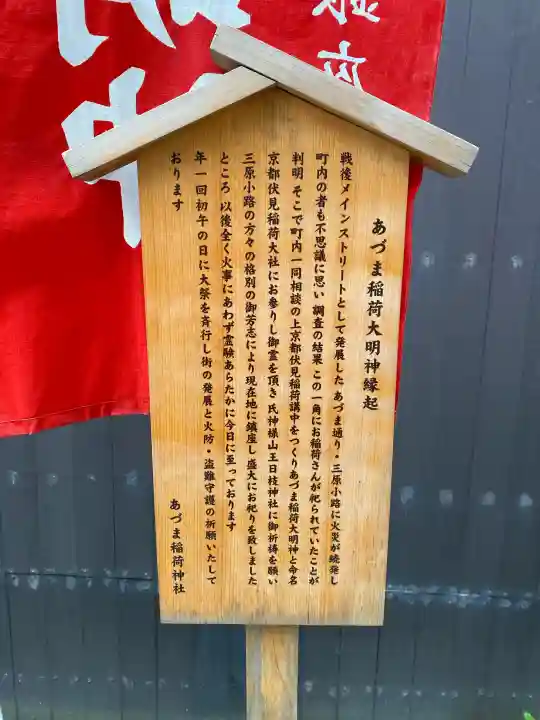 あづま稲荷大明神縁起
戦後メインストリートとして発展した あづま通り・三原小路に火災が続発し
町内の者も不思議に思い 調査の結果 この一角にお稲荷さんが祀られていたことが
判明 そこで町内一同相談の上京都伏見稲荷講中をつくりあづま稲荷大明神と命名
京都伏見稲荷大社にお参りし御霊を頂き 氏神様山王日枝神社に御祈祷を願い
三原小路の方々の格別の御芳志により現在地に鎮座し 盛大にお祀りを致しました
ところ 以後全く火事にあわず霊験あらたかに今日に至っております
年一回初午の日に大祭を斉行し街の発展と火防・盗難守護の祈願いたして
おります
あづま稲荷神社